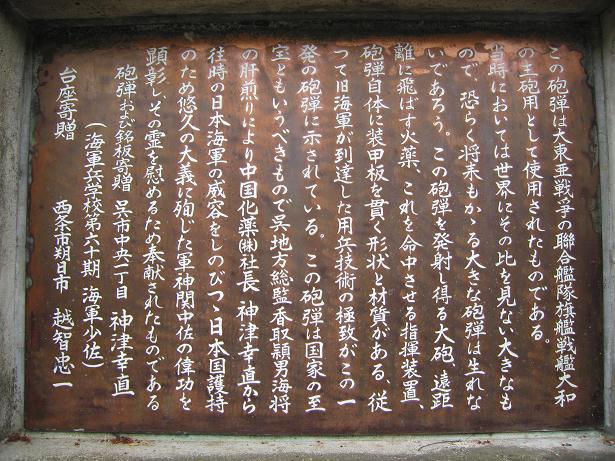 この砲弾は大東亜戦争の聯合艦隊旗艦戦艦大和
の主砲用として使用されたものである。
当時においては世界にその比を見ない大きなも
ので、恐らく将来もかゝる大きな砲弾は生れな
いであろう。この砲弾を発射し得る大砲、遠距
離に飛ばす火薬、これを命中させる指揮装置、
砲弾自体に装甲板を貫く形状と材質がある、従
つて旧海軍が到達した用兵技術の極致がこの一
発の砲弾に示されている。この砲弾は国家の至
宝ともいうべきもので呉地方総監香取頴男海将
の肝煎りにより中国化薬㈱社長 神津幸直から
往時の日本海軍の威容をしのびつゝ日本国護持
のため悠久の大義に殉じた軍神関中佐の偉功を
顕彰しその霊を慰めるため奉献されたものである
砲弾および銘板寄贈 呉市中央一丁目 神津幸直
(海軍兵学校第六十期 海軍少佐)
台座寄贈 西条市朔日市 越智忠一